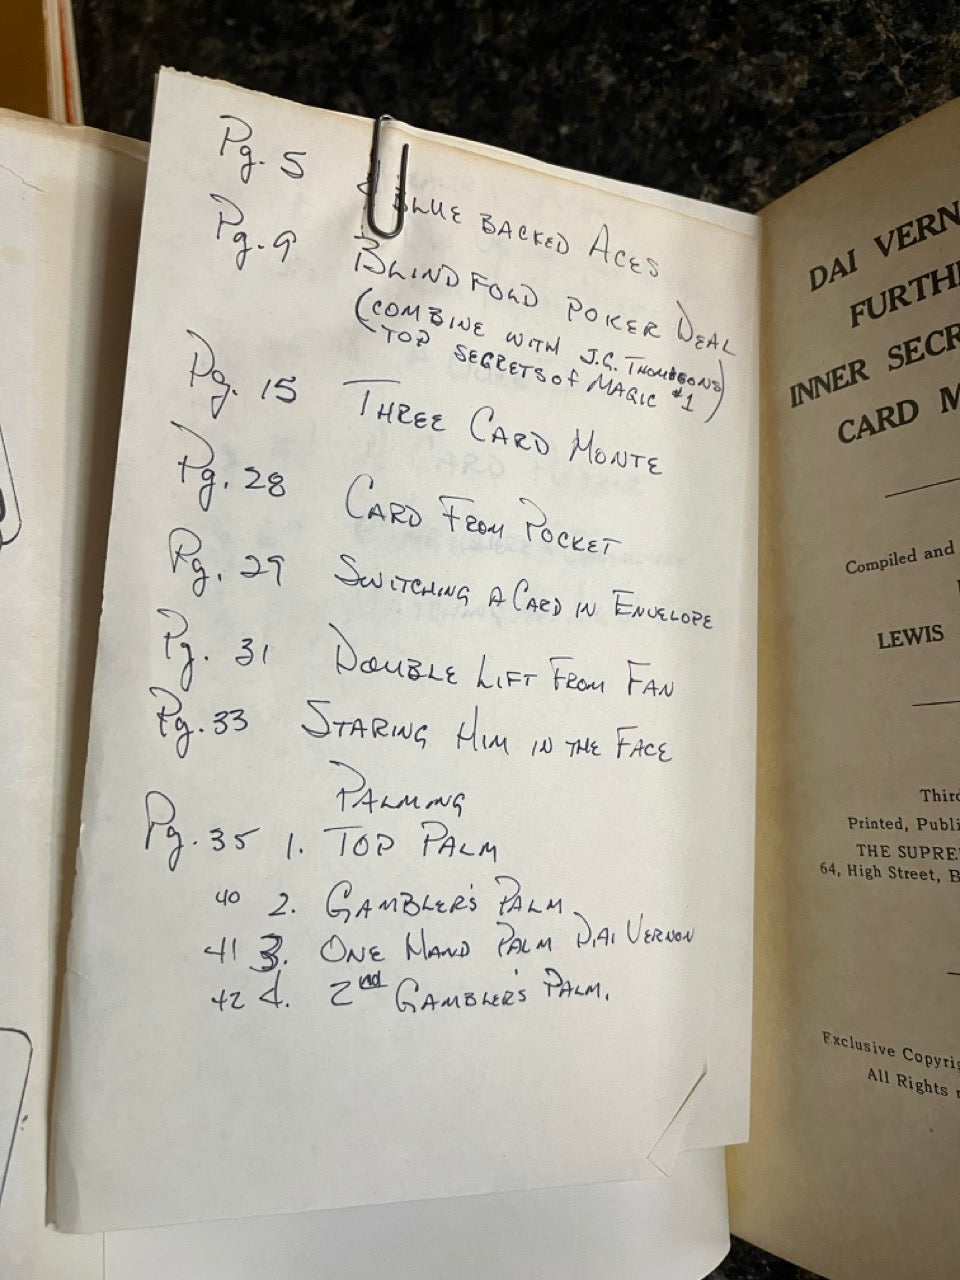 Pg. 5 BLUE BACKED ACES
Pg. 9 BLINDFOLD POKER DEAL
(COMBINE WITH J.G. THOMPSONS
TOP SECRETS of MAGIC #1)
Pg. 15 THREE CARD MONTE
Pg. 28 CARD FROM POCKET
Pg. 29 SWITCHING A CARD IN ENVELOPE
Pg. 31 DOUBLE LIFT FROM FAN
Pg. 33 STARING HIM IN THE FACE
PALMING
Pg. 35 1. TOP PALM
40 2. GAMBLER'S PALM
41 3. ONE HAND PALM DAI VERNON
42 4. 2nd GAMBLER'S PALM.
DAI VERN
FURTH
INNER SECR
CARD M
Compiled and
LEWIS
Third
Printed, Publi
THE SUPRE
64, High Street, B
Exclusive Copyrig
All Rights